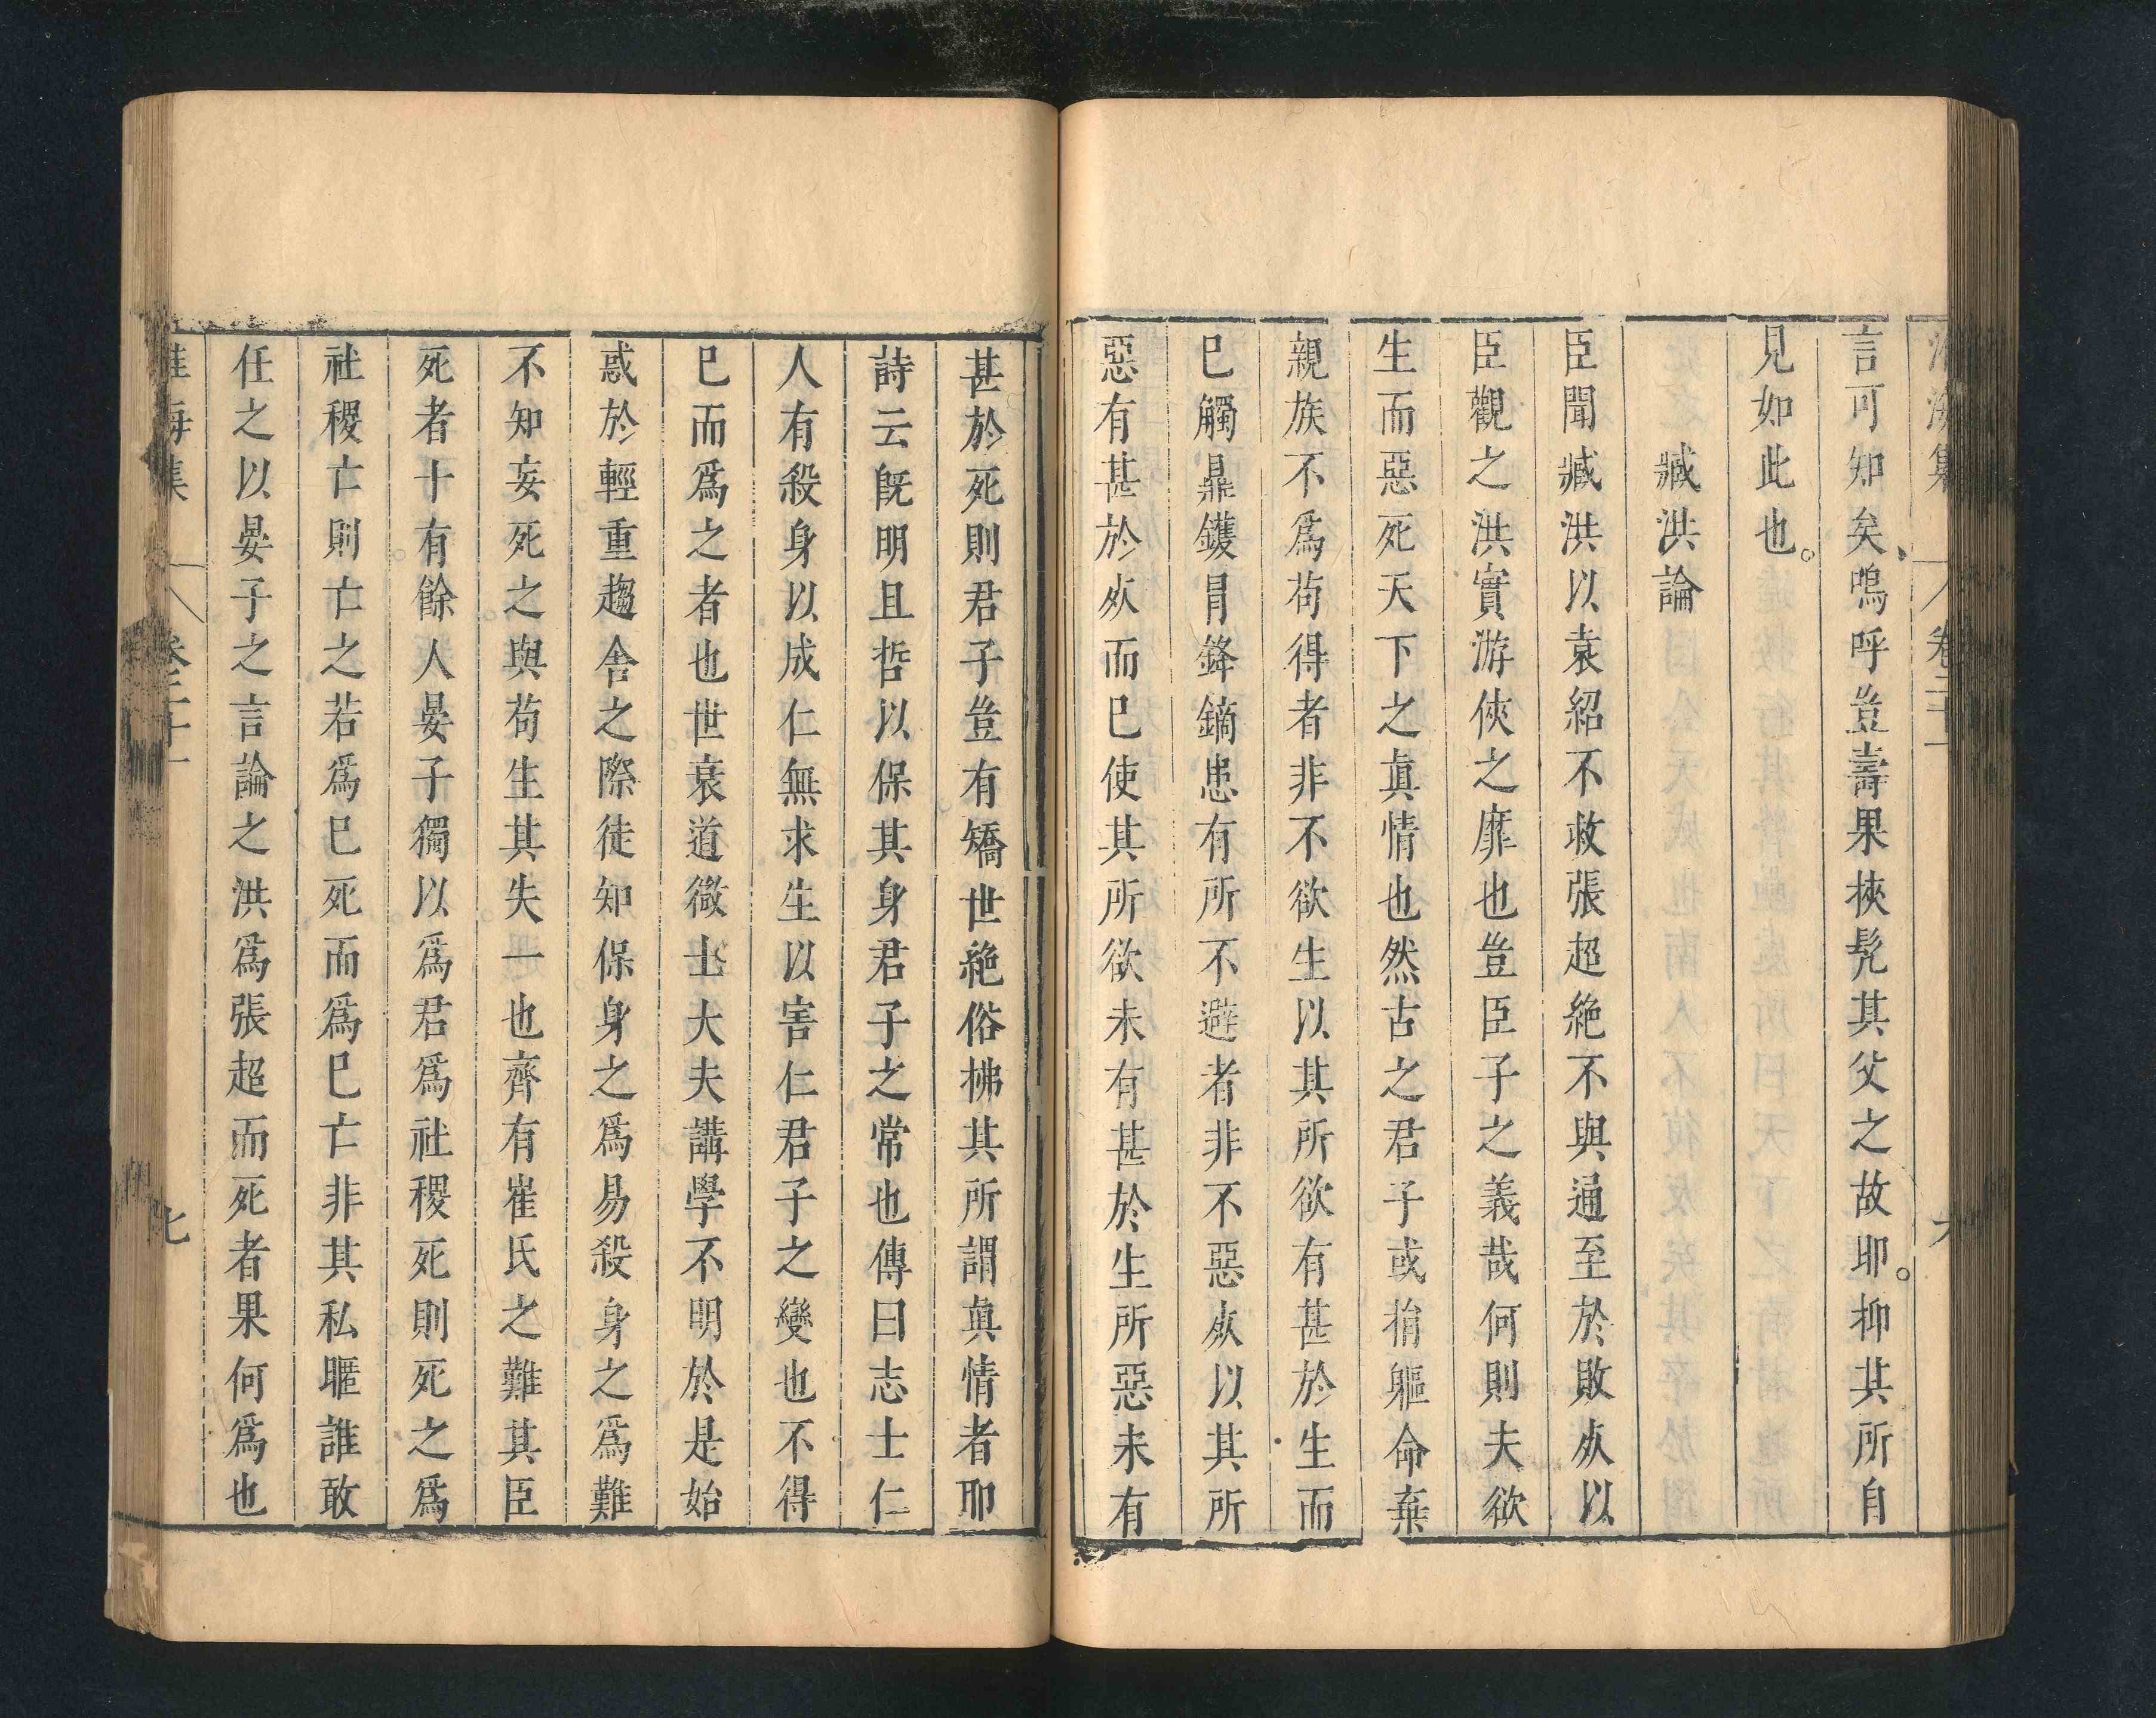 淮海集 卷二十一 六
言可知矣嗚呼豈壽果挾髡其父之故耶。抑其所自
見如此也。
臧洪論
臣聞臧洪以袁紹不救張超絶不與通至於敗㱙以
臣觀之洪實游俠之靡也豈臣子之義哉何則夫欲
生而惡死天下之眞情也然古之君子或捐軀命棄
親族不爲苟得者非不欲生以其所欲有甚於生而
已觸鼎鑊冐鋒鏑患有所不避者非不惡㱙以其所
惡有甚於㱙而已使其所欲未有甚於生所惡未有
甚於死則君子豈有矯世絶俗拂其所謂眞情者耶
詩云旣明且哲以保其身君子之常也傳曰志士仁
人有殺身以成仁無求生以害仁君子之變也不得
已而爲之者也世衰道微士大夫講學不明於是始
惑於輕重趨舍之際徒知保身之爲易殺身之爲難
不知妄死之與苟生其失一也齊有崔氏之難其臣
死者十有餘人晏子獨以爲君爲社稷死則死之爲
社稷亡則亡之若爲已死而爲已亡非其私暱誰敢
任之以晏子之言論之洪爲張超而死者果何爲也
淮海集 卷二十一 七